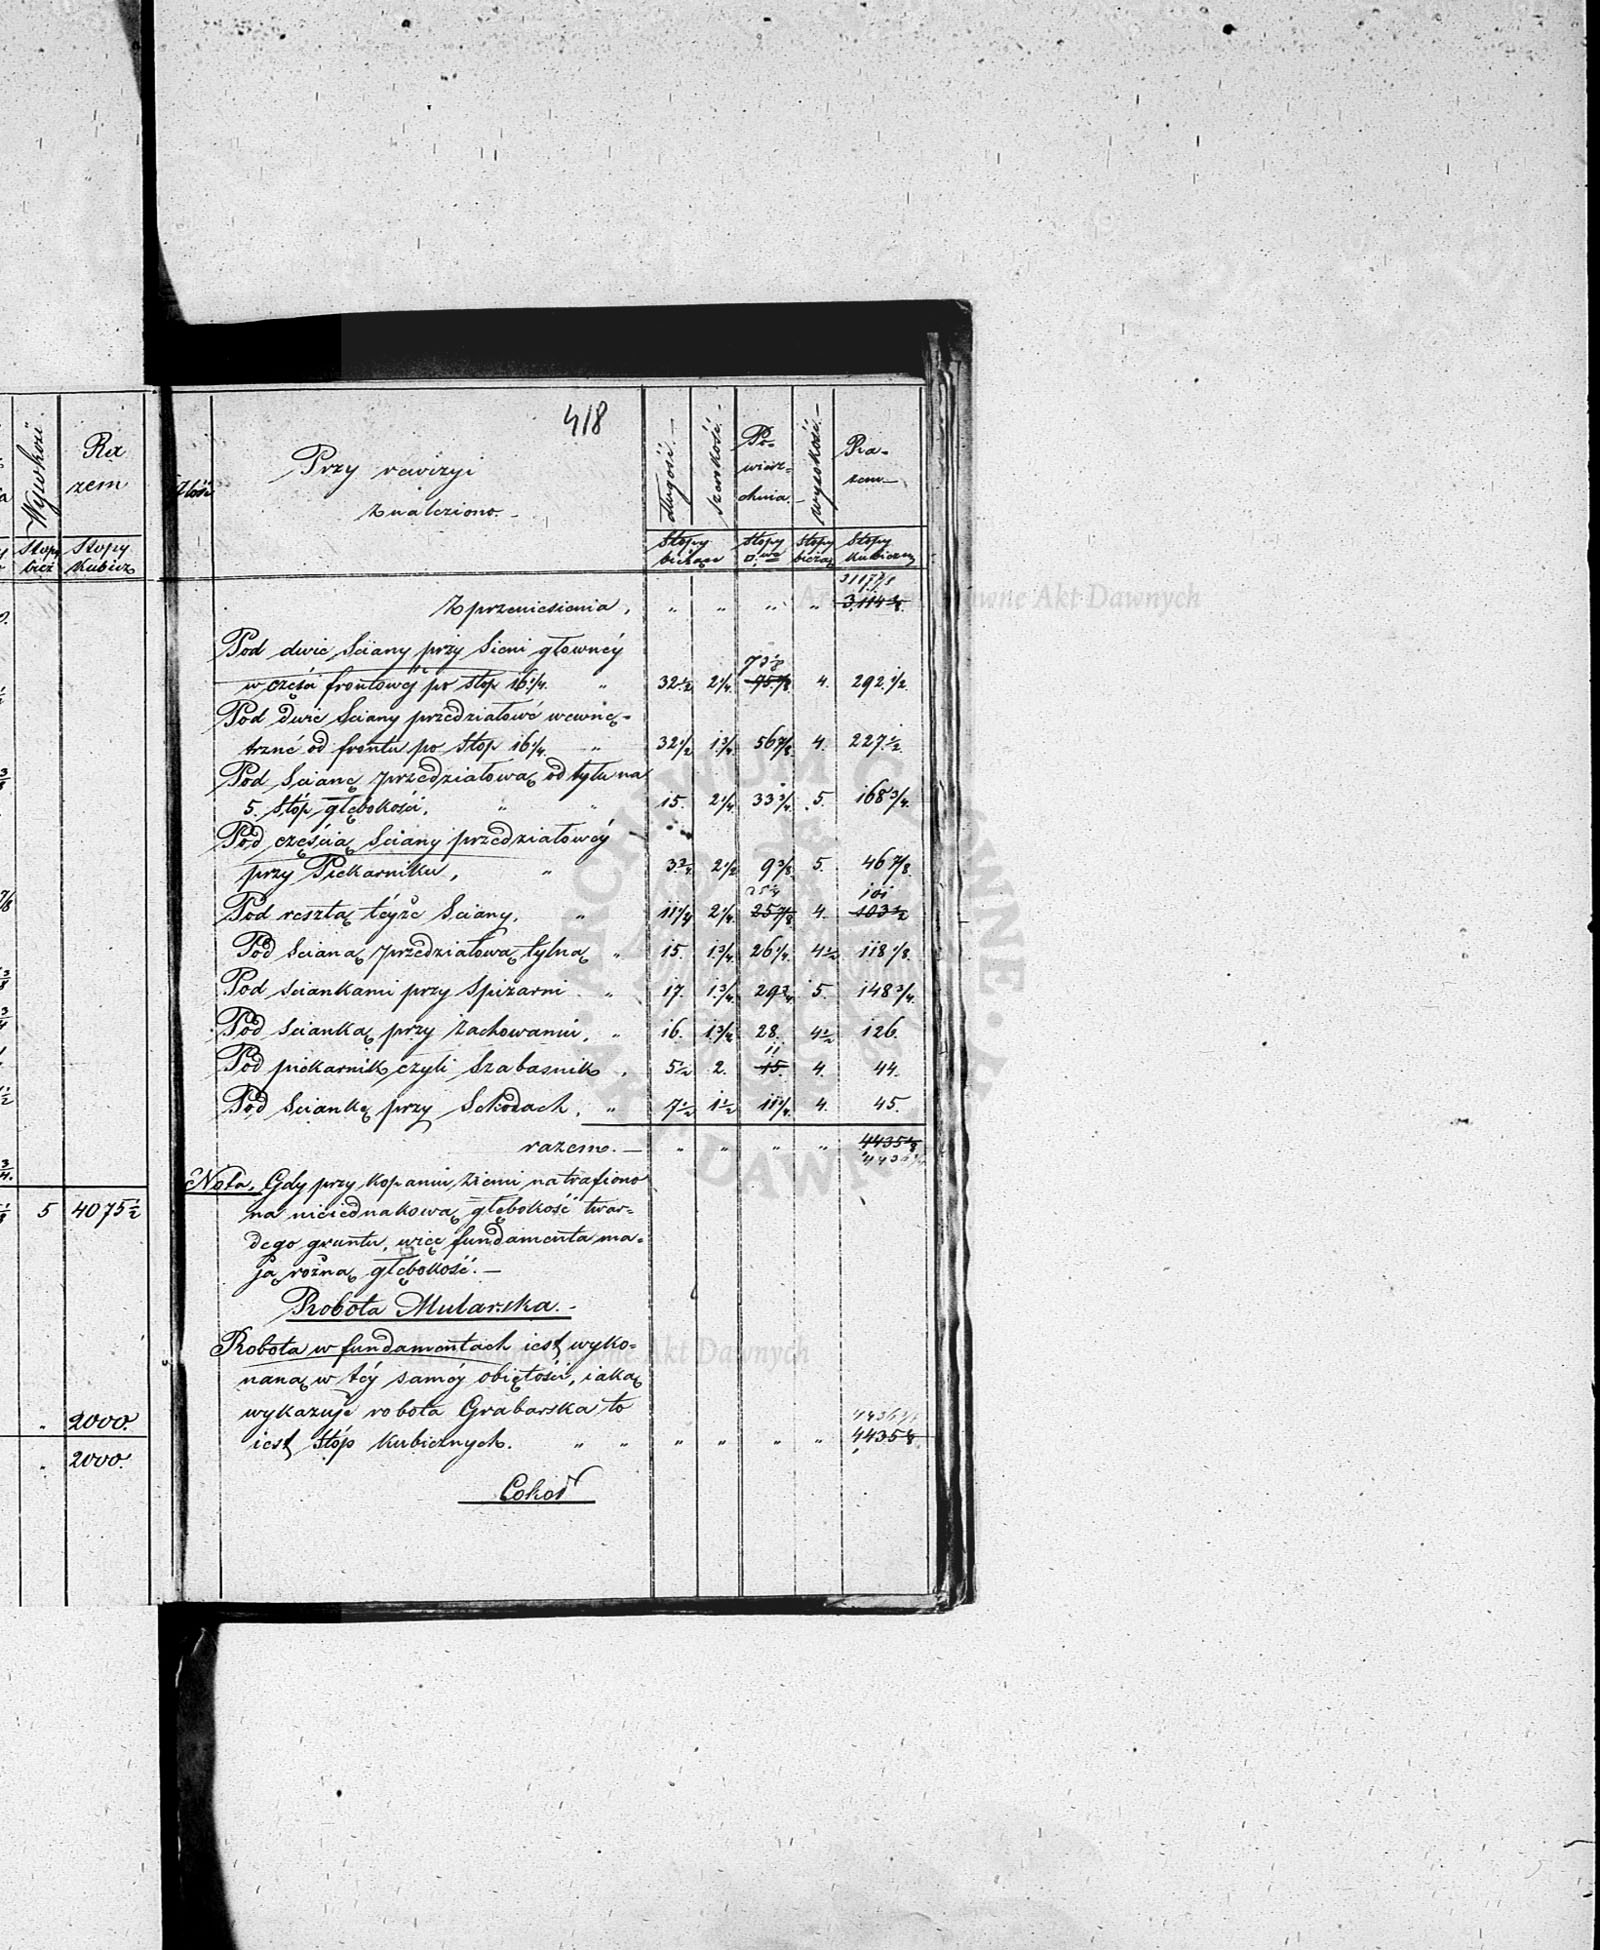 Wysokość
Ra
zem
Stopy
bież
Stopy
Kubicz
5 4075 1/2
" 2000.
" 2000.
418
Ilość
Przy rewizyi
znaleziono.-
długość.-
szerokość.-
Po-
wierz-
chnia.-
wysokość.-
Ra-
zem-
Stopy
bieżące
Stopy
□we
Stopy
bieżące
Stopy
Kubiczne
Z przeniesienia, " " " " 3,114
Pod dwie Sciany przy Sieni główney 73 1/8
w części frontowey po stop 16 1/4. " 32 1/2 2 1/4. 4. 292 1/2.
Pod dwie Sciany przedziałowé wewnę-
trzné od frontu po Stop 16 1/4. " 32 1/2 1 3/4. 56 7/8 4. 227 1/2.
Pod Scianę przedziałową od tyłu na
5. Stóp głębokości, " " 15. 2 1/4. 33 3/4. 5. 168 3/4.
Pod częścią Sciany przedziałowéy
przy Piekarniku, " 3 3/4 2 1/2 9 3/8. 5. 46 7/8.
25 1/4 101
Pod resztą téyże Sciany, " 11 1/4 2 1/4. 25 7/8 4. 103 1/2
Pod Scianą przedziałową tylną " 15. 1 3/4. 26 1/4. 4 1/2 118 1/8.
Pod sciankami przy Spiżarni " 17. 1 3/4. 29 3/4 5. 148 3/4.
Pod Scianką przy zachowaniu, " 16. 1 3/4 28. 4 1/2 126.
11
Pod piekarnik czyli Szabasnik, 5 1/2 2. 15. 4. 44.
Pod Sciankę przy Schodach, " 7 1/2 1 1/2 11 1/4. 4. 45.
razem.- " " " " 4435
Nota, Gdy przy kopaniu ziemi natrafiono
na niejednakową głębokość twar-
dego gruntu, więc fundamenta ma-
ją rożną głębokość.-
Robota Mularska.-
Robota w fundamentach iest wyko-
naną w téy saméy obiętości, iaką
wykazuje robota Grabarska to
iest Stóp Kubicznych. " " " " " " 4435
Cokoł
Archiwum Główne Akt Dawnych
Archiwum Główne Akt Dawnych
ARCHIWUM GŁÓWNE AKT DAWNYCH